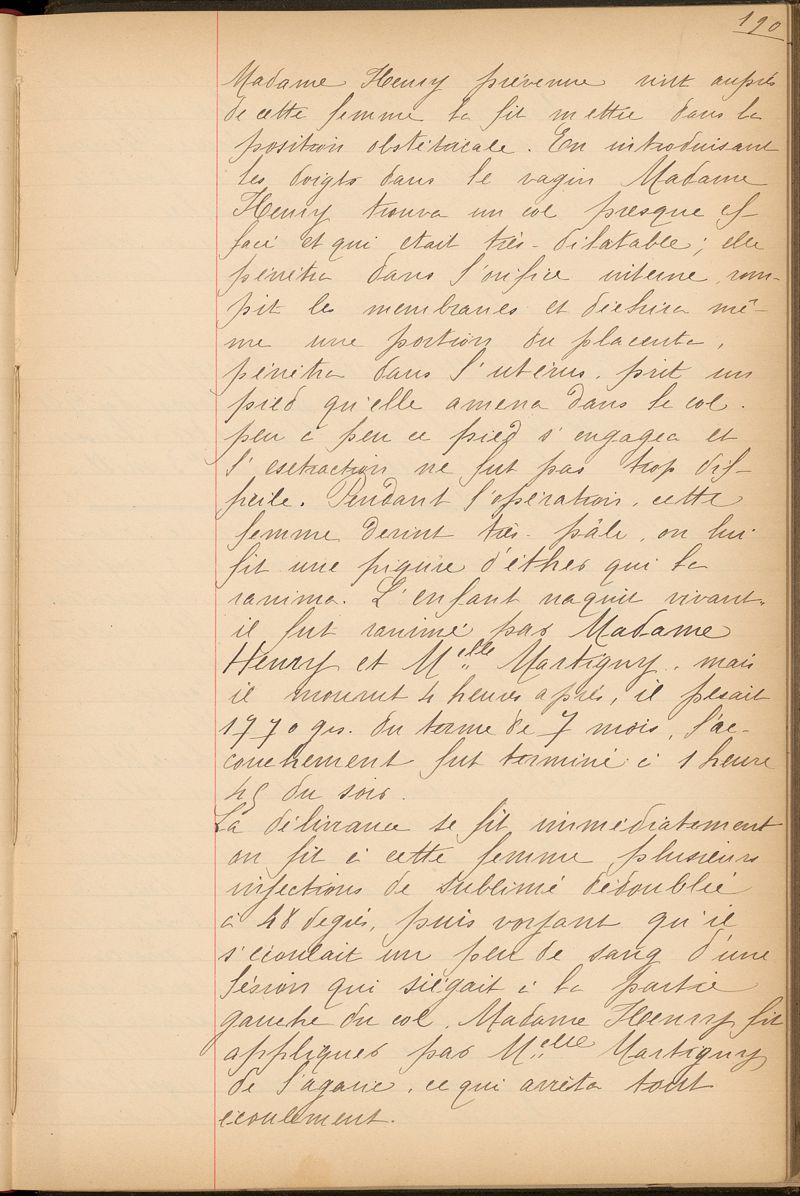 190
Madame Henry prévenue vint auprès
de cette femme la fit mettre dans la
position obstétricale. En introduisant
les doigts dans le vagin Madame
Henry trouva un col presque ef-
facé et qui était très-dilatable; elle
pénétra dans l'orifice interne, rom-
pit les membranes et déchira mê-
me une portion du placenta,
pénétra dans l'utérus, prit un
pied qu'elle amena dans le col.
peu à peu ce pied s'engagea et
l'extraction ne fut pas trop dif-
ficile. Pendant l'opération, cette
femme devint très-pâle, on lui
fit une piqûre d'éther qui la
ranima. L'enfant naquit vivant,
il fut ranimé par Madame
Henry et Melle Martigny, mais
il mourut 4 heures après, il pesait
1970 grs. du terme de 7 mois, l'ac-
couchement fut terminé à 1 heure
45 du soir.
La délivrance se fit immédiatement
on fit à cette femme plusieurs
injections de sublimé dédoublé
à 48 degrés, puis voyant qu'il
s'écoulait un peu de sang d'une
lésion qui siégait à la partie
gauche du col, Madame Henry fit
appliquer par Melle Martigny
de l'agaric, ce qui arrêta tout
écoulement.